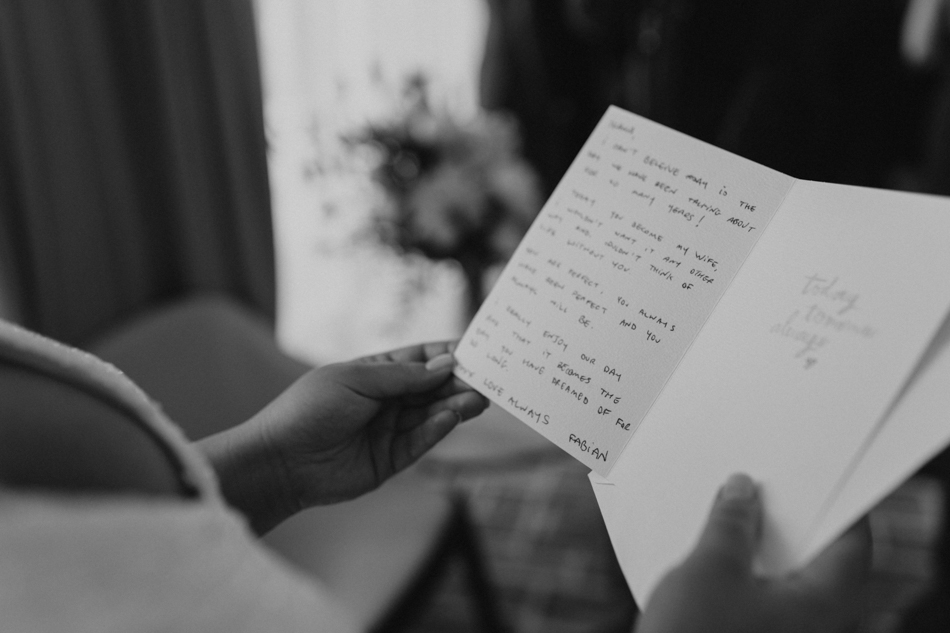 I CAN'T BELIEVE TODAY IS THE
DAY WE HAVE BEEN TALKING ABOUT
FOR SO MANY YEARS!
TODAY YOU BECOME MY WIFE,
WOULDN'T WANT IT ANY OTHER
WAY AND COULDN'T THINK OF
LIFE WITHOUT YOU
YOU ARE PERFECT, YOU ALWAYS
HAVE BEEN PERFECT AND YOU
ALWAYS WILL BE.
REALLY ENJOY OUR DAY
THAT IT BECOMES THE
DAY YOU HAVE DREAMED OF FOR
SO LONG.
LOVE ALWAYS
FABIAN
today
tomorrow
always